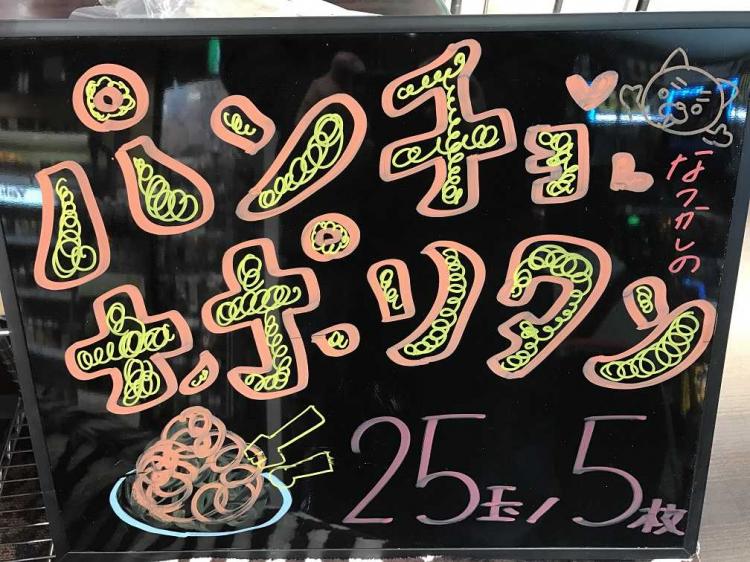 なつかしの
パンチョ
ナポリタン
25玉/5枚